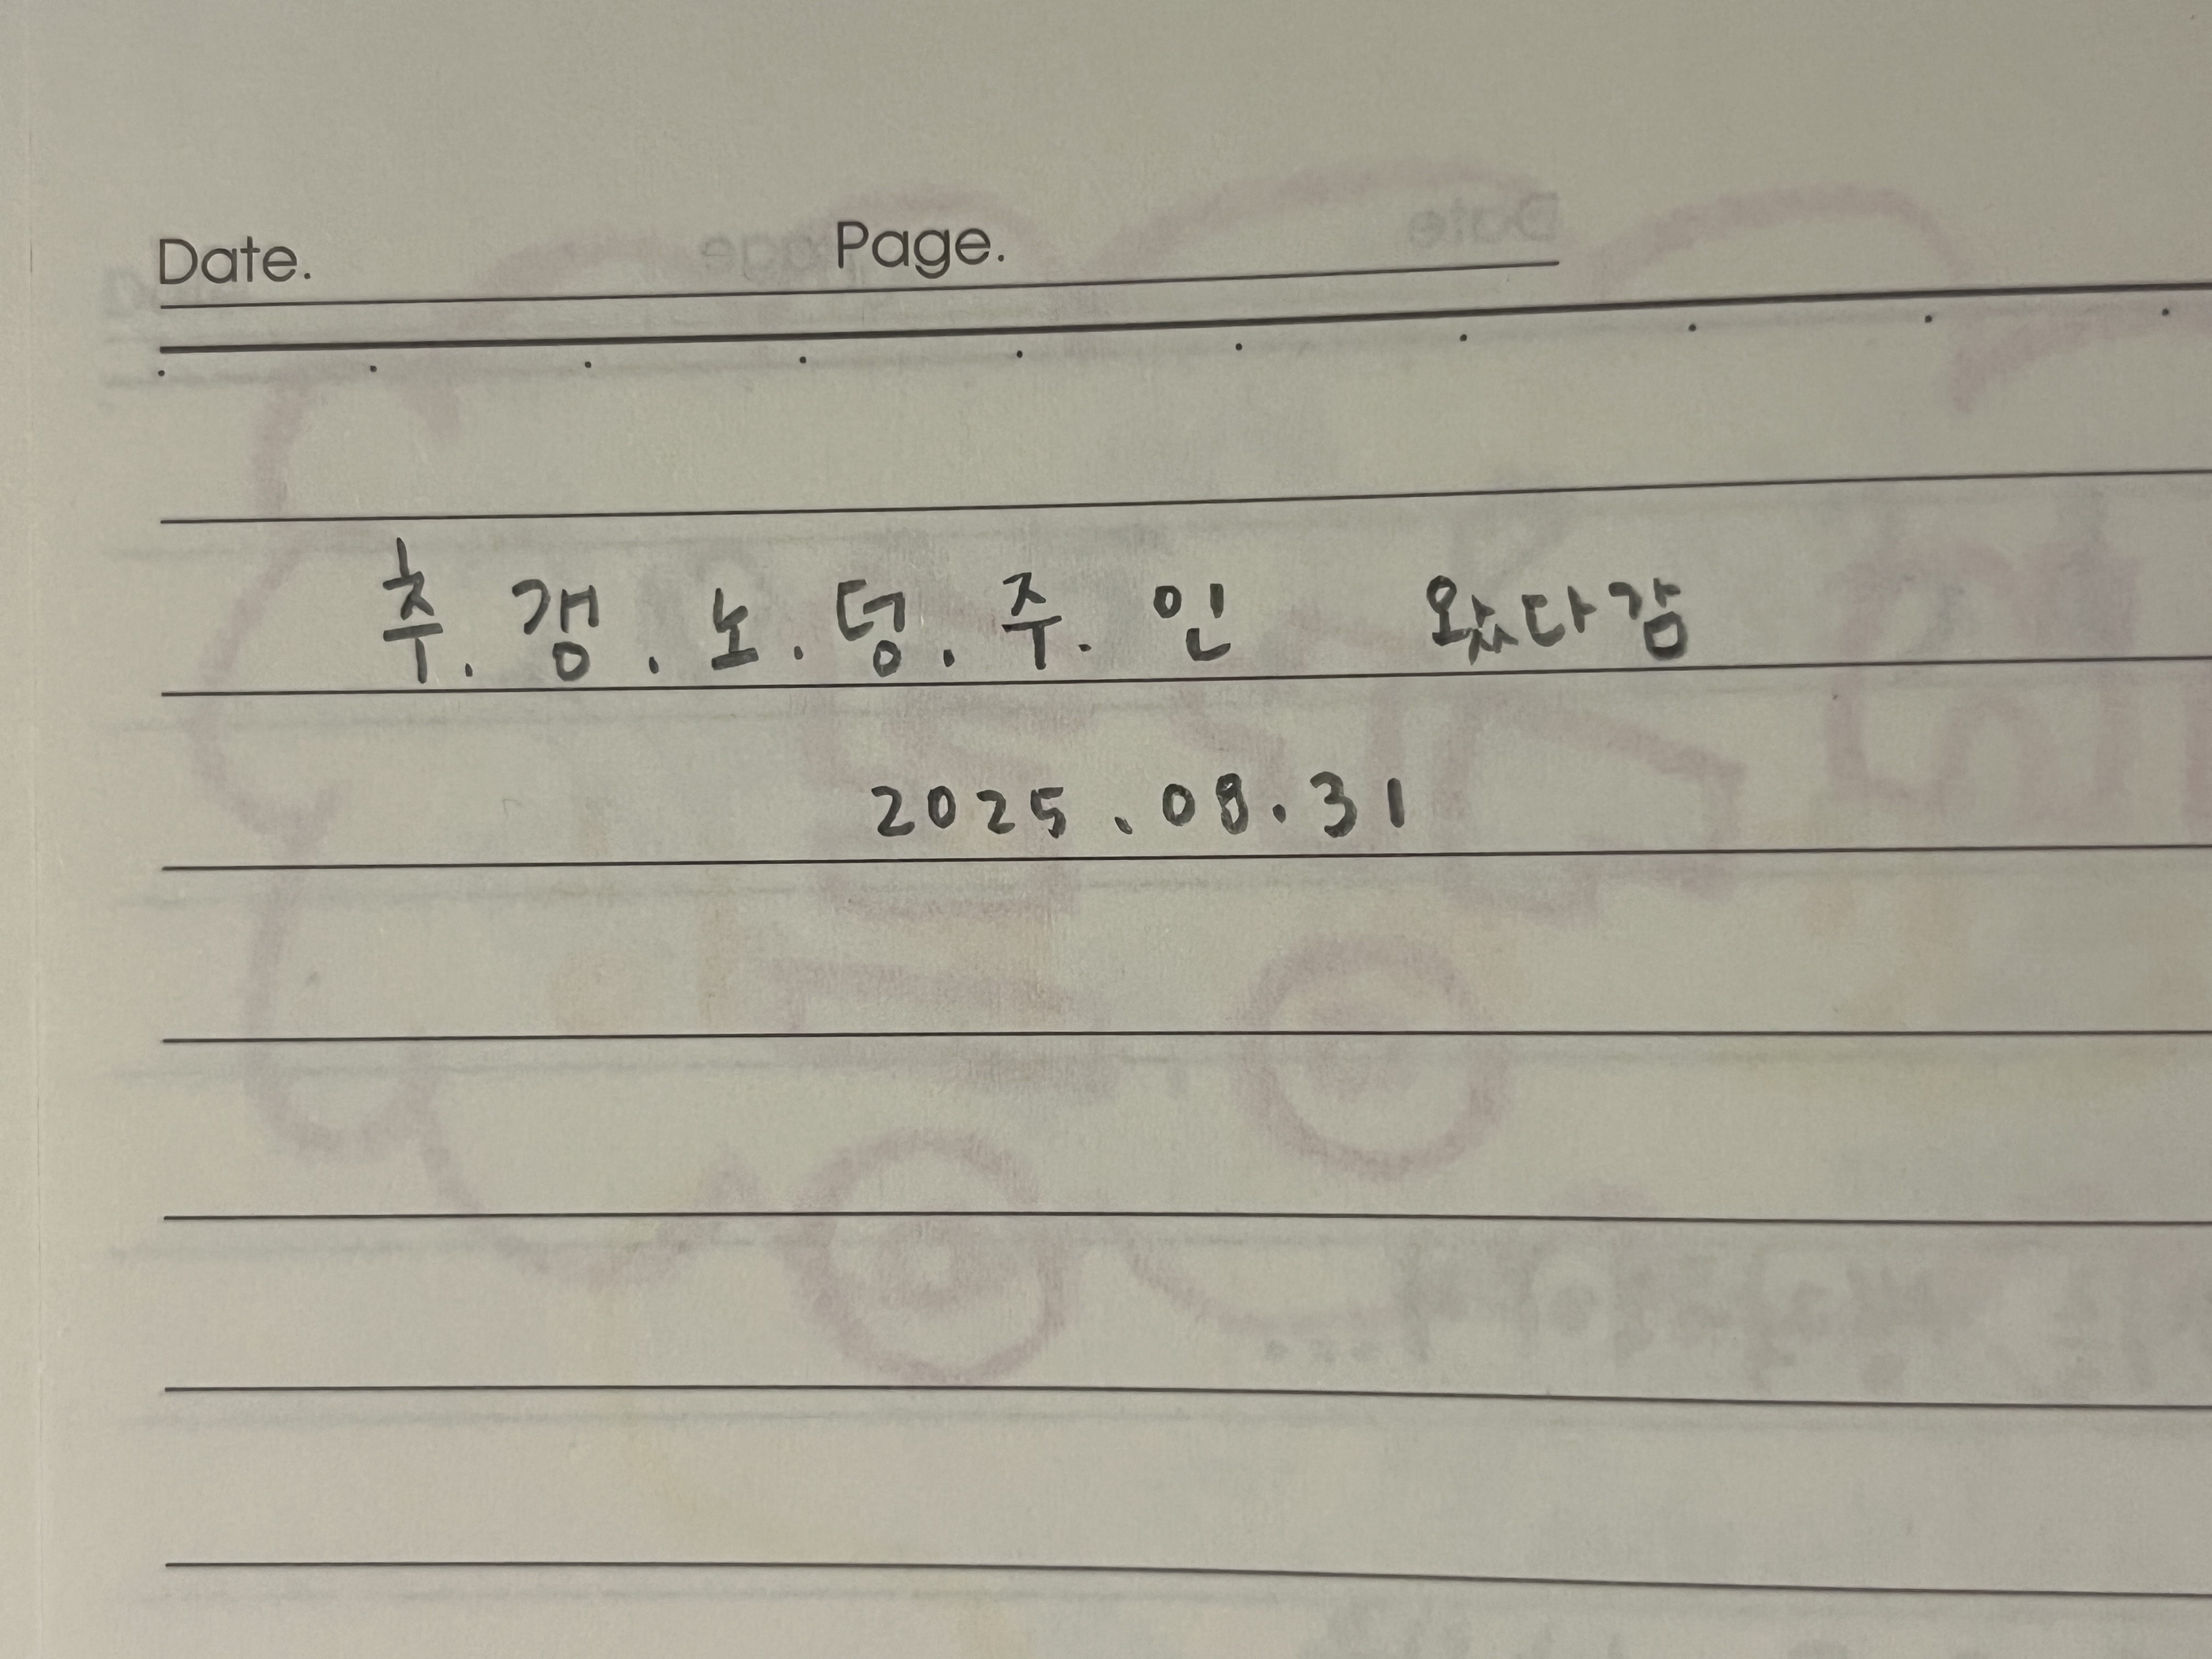 Date. Page.
츄.갱.노.덩.주.인 왔다감
2025.08.31